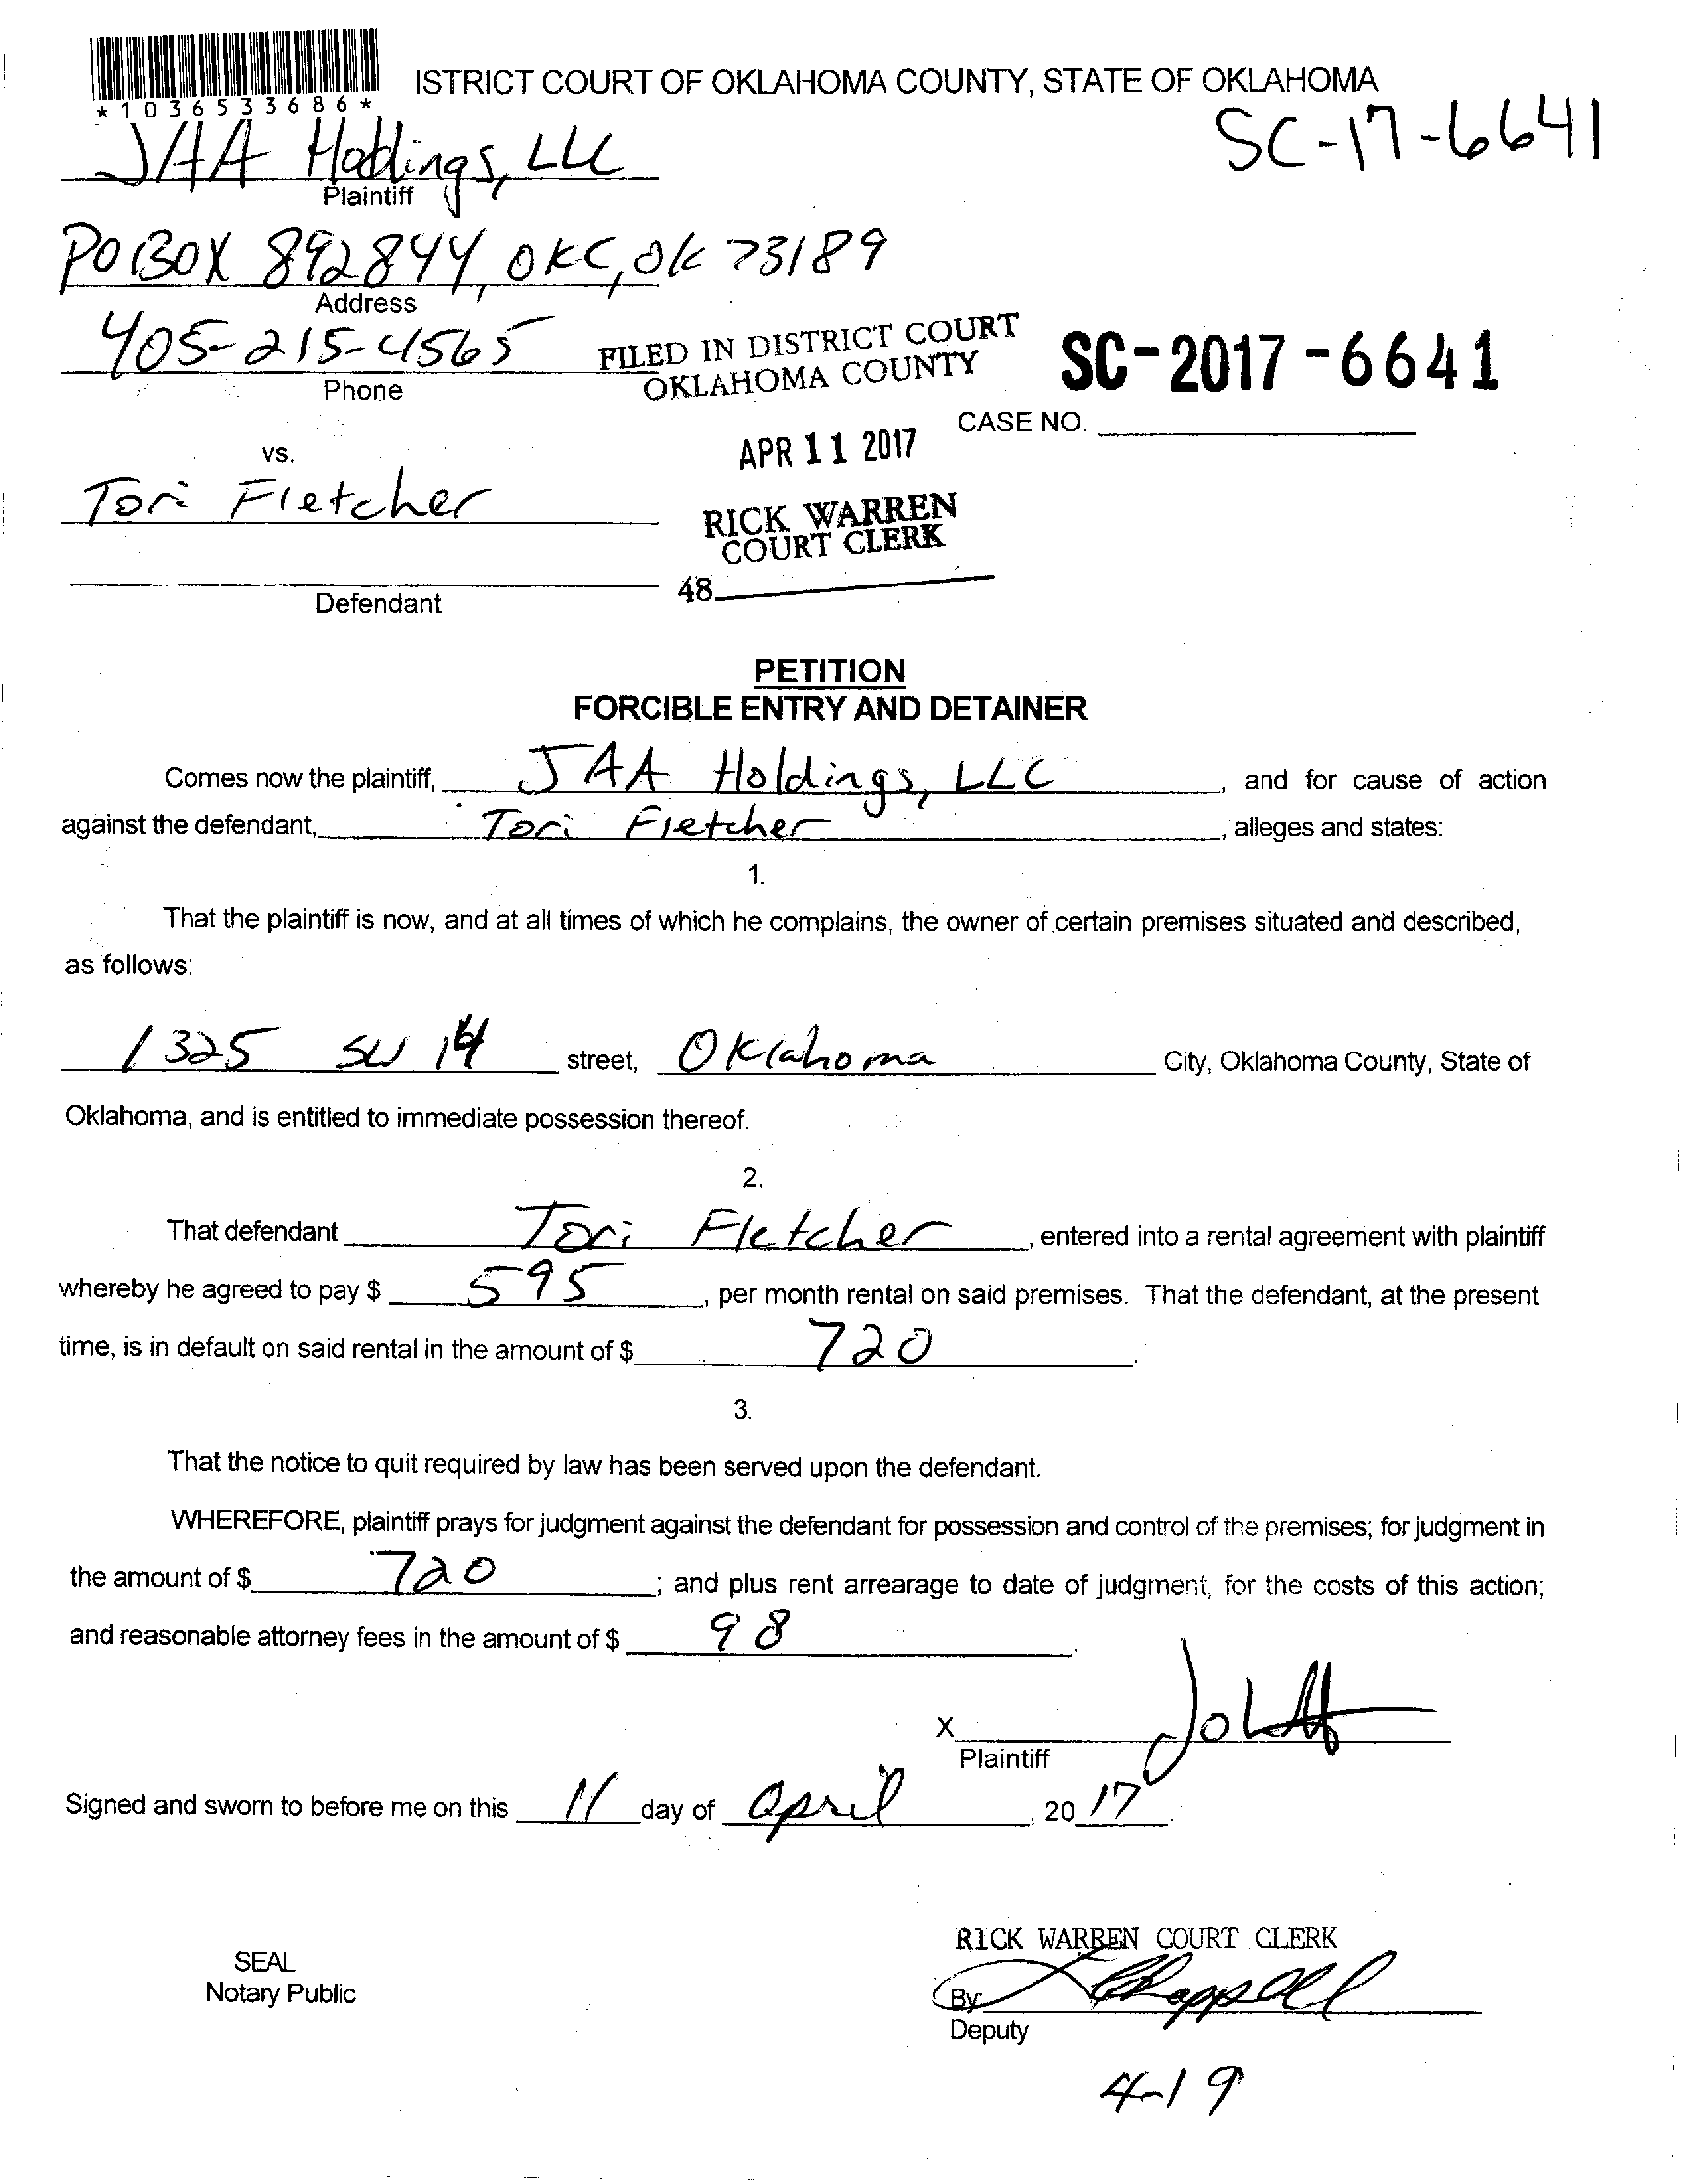 *1036533686*
ISTRICT COURT OF OKLAHOMA COUNTY, STATE OF OKLAHOMA
SC-17-6641
JAA Holdings, LLC
Plaintiff
PO BOX 892844, OKC, OK 73189
Address
405-215-4565
Phone
FILED IN DISTRICT COURT
OKLAHOMA COUNTY
SC-2017-6641
CASE NO.
APR 11 2017
vs.
Tori Fletcher
RICK WARREN
COURT CLERK
48
Defendant
PETITION
FORCIBLE ENTRY AND DETAINER
Comes now the plaintiff, JAA Holdings, LLC, and for cause of action
against the defendant, Tori Fletcher, alleges and states:
1.
That the plaintiff is now, and at all times of which he complains, the owner of certain premises situated and described,
as follows:
1325 SW 14 street, Oklahoma City, Oklahoma County, State of
Oklahoma, and is entitled to immediate possession thereof.
2.
That defendant Tori Fletcher, entered into a rental agreement with plaintiff
whereby he agreed to pay $ 595, per month rental on said premises. That the defendant, at the present
time, is in default on said rental in the amount of $ 720.
3.
That the notice to quit required by law has been served upon the defendant.
WHEREFORE, plaintiff prays for judgment against the defendant for possession and control of the premises; for judgment in
the amount of $ 720; and plus rent arrearage to date of judgment, for the costs of this action;
and reasonable attorney fees in the amount of $ 98.
X
Plaintiff
Signed and sworn to before me on this 11 day of April, 20 17.
RICK WARREN COURT CLERK
SEAL
Notary Public
By
Chappell
Deputy
4-19